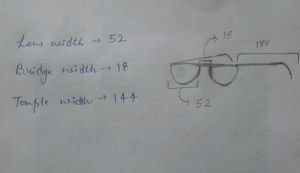 Lens width → 52
Bridge width → 18
Temple width → 144
18
144
52